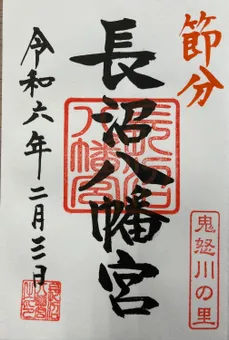 節分
長沼八幡宮
長沼八幡宮
鬼怒川の里
令和六年二月三日